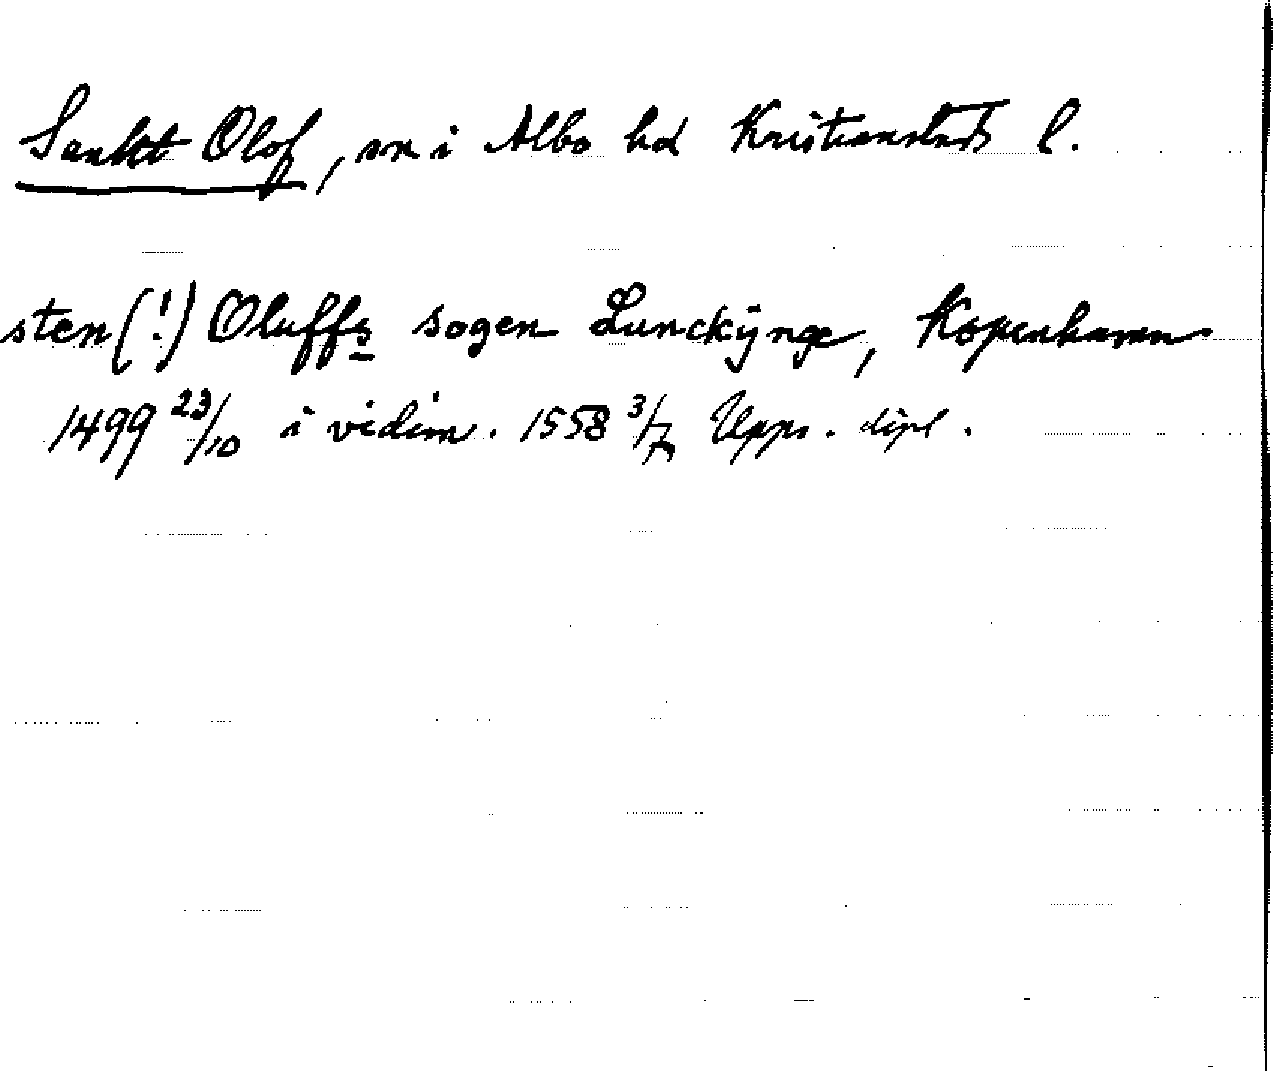 Sankt Olof, sn i Albo hd Kristianstads l.
sten (!) Oluffs sogen Lunckÿnge, Köpenhamn
1499 23/10 i vidim. 1558 3/7 Upps. dipl.